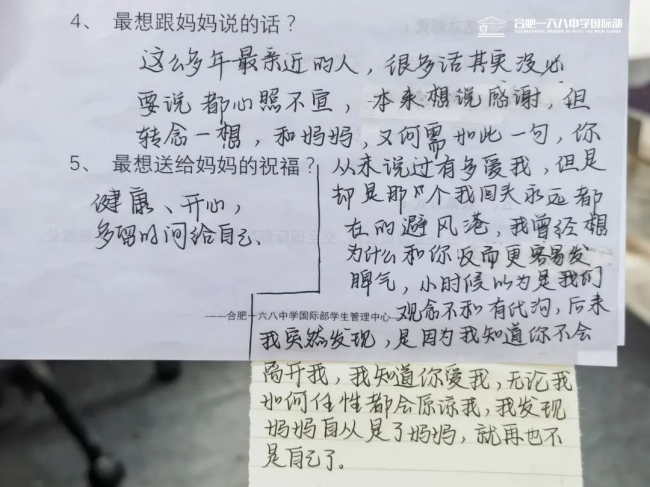 合肥一六八中学国际部
4、最想跟妈妈说的话？
这么多年最亲近的人，很多话其实没必
要说都心照不宣，本来想说感谢，但
转念一想，和妈妈，又何需如此一句，你
从来说过有多爱我，但是
却是那个我回头永远都
在的避风港，我曾经想
为什么和你反而更容易发
脾气，小时候以为是我们
观念不和有代沟，后来
我突然发现，是因为我知道你不会
离开我，我知道你爱我，无论我
如何任性都会原谅我，我发现
妈妈自从是了妈妈，就再也不
是自己了。
5、最想送给妈妈的祝福？
健康、开心，
多留时间给自己、
——合肥一六八中学国际部学生管理中心